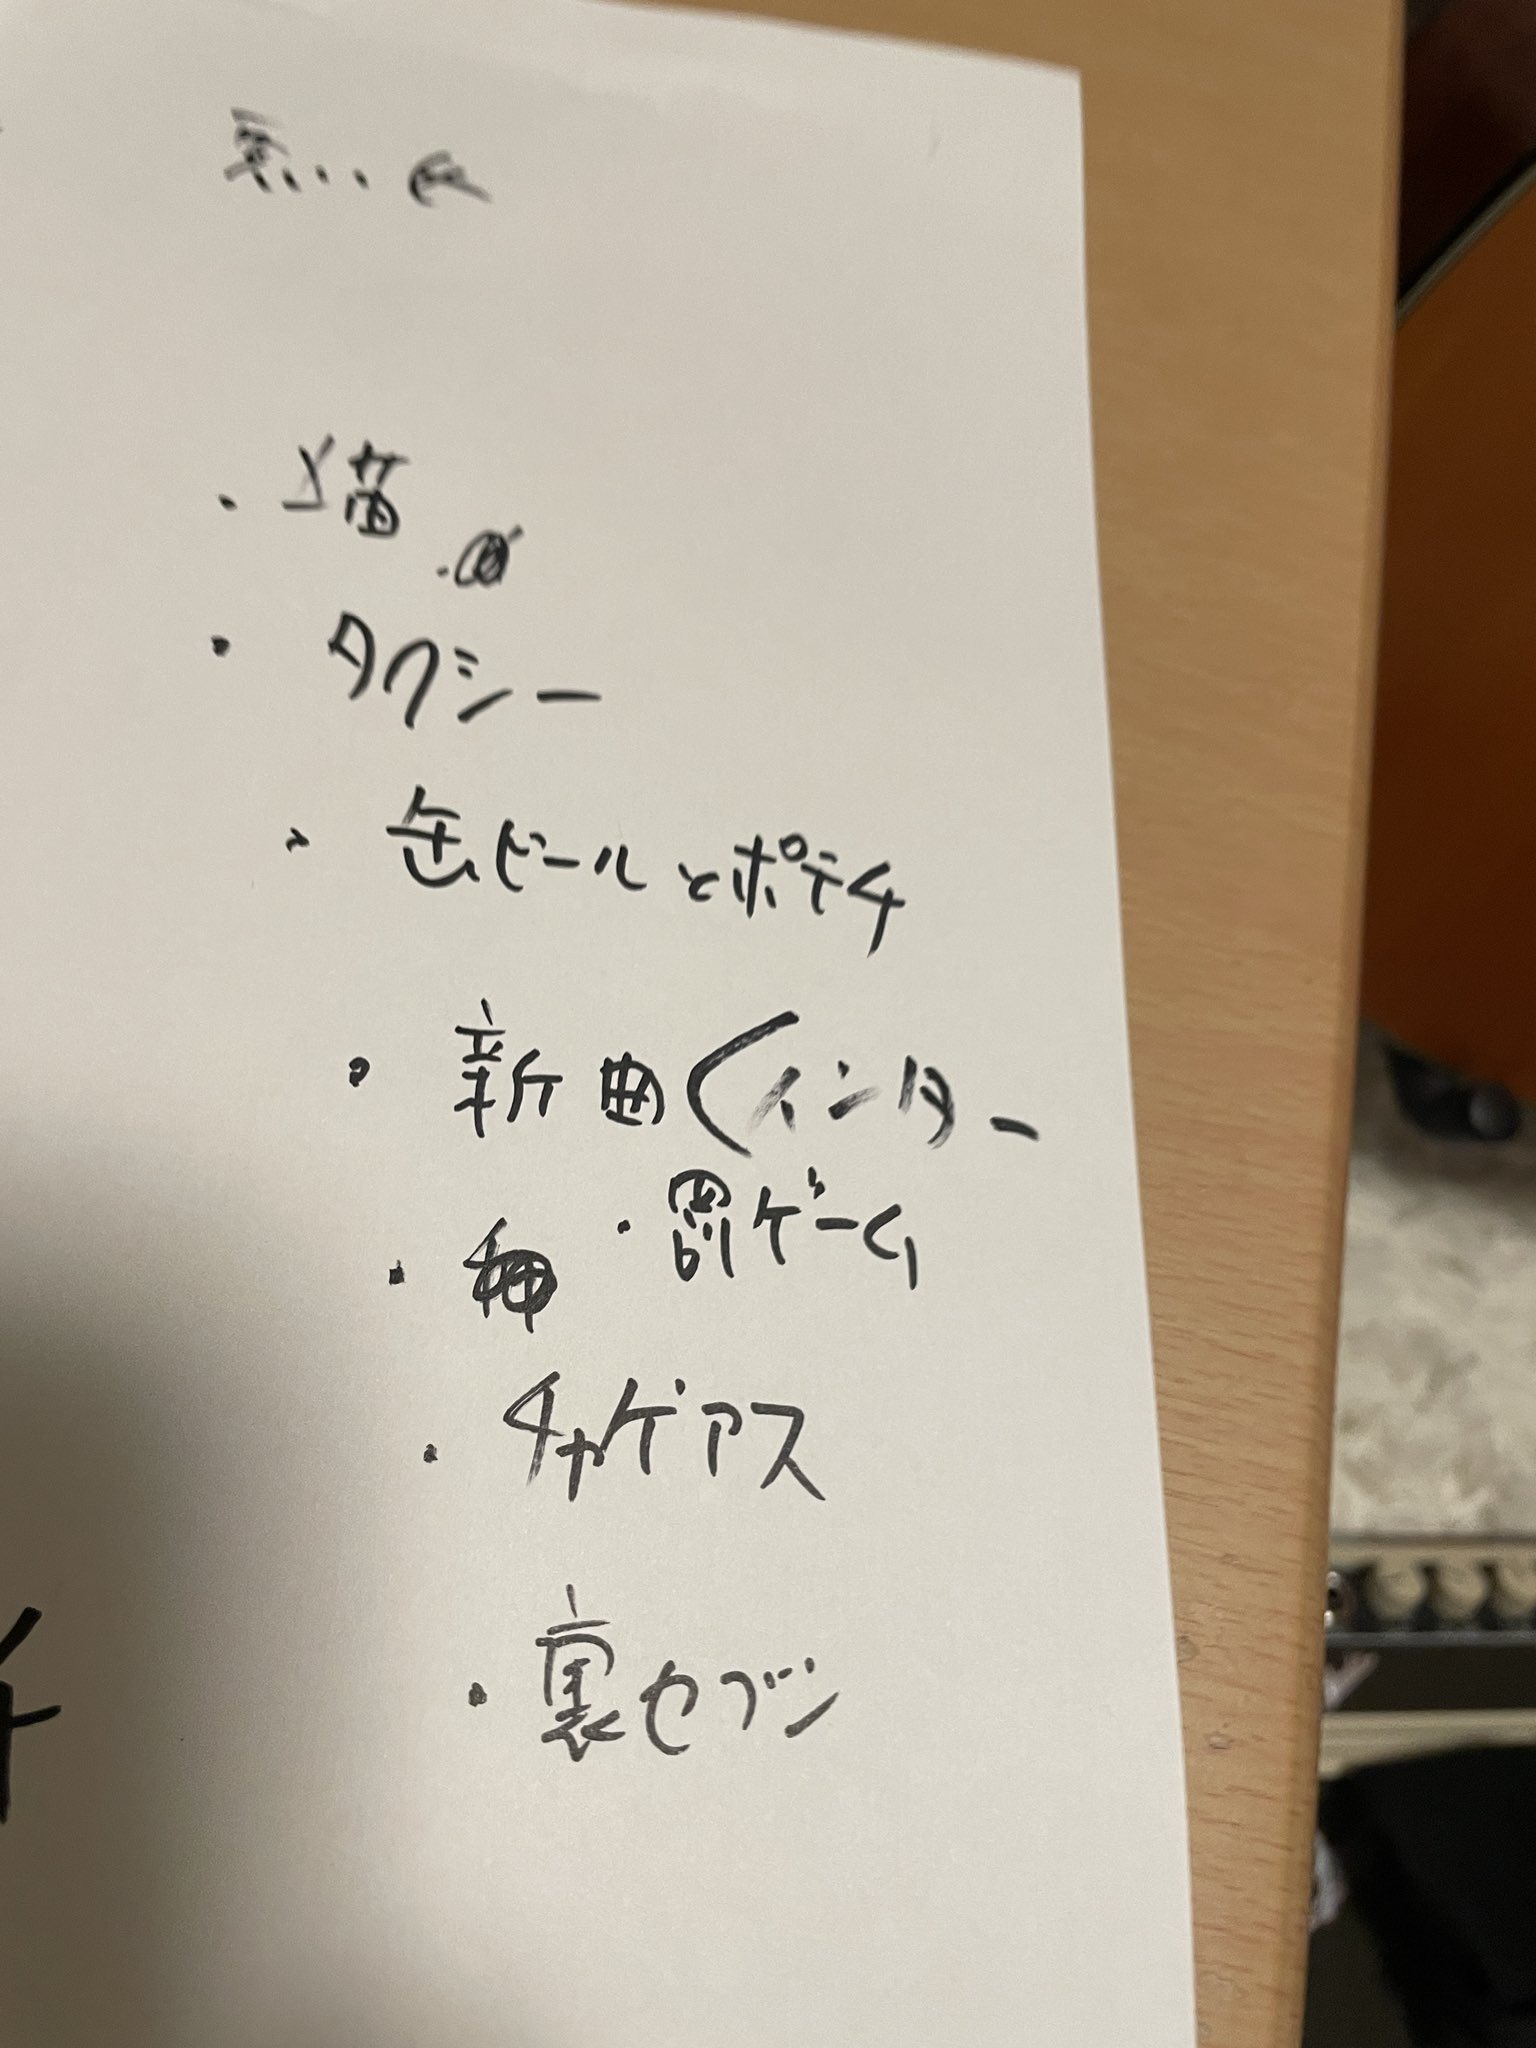 ・タクシー
・缶ビールとポテチ
・新曲(インター
・罰ゲーム
・チャゲアス
・裏セブン